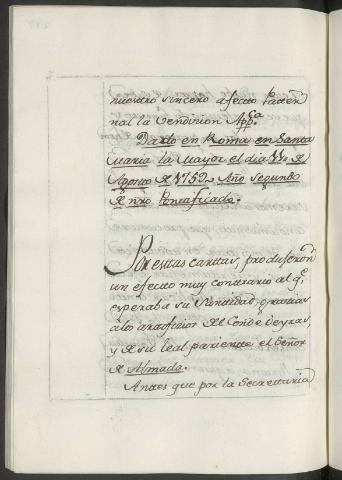 nuestro sincero afecto Pater
nal la Vendizion App.ca
Dardo en Roma en Santa
Maria la Mayor el dia 11 de
Agosto de 1759. Año Segundo
de nro Pontificado.
Por estas cartas, produjeron
un efecto muy contrario al q.e
esperaba su Santidad, gracias
a los artificios del Conde Oeyras,
y de su leal pariente el Señor
de Almada.
Antes que por la Secretaria